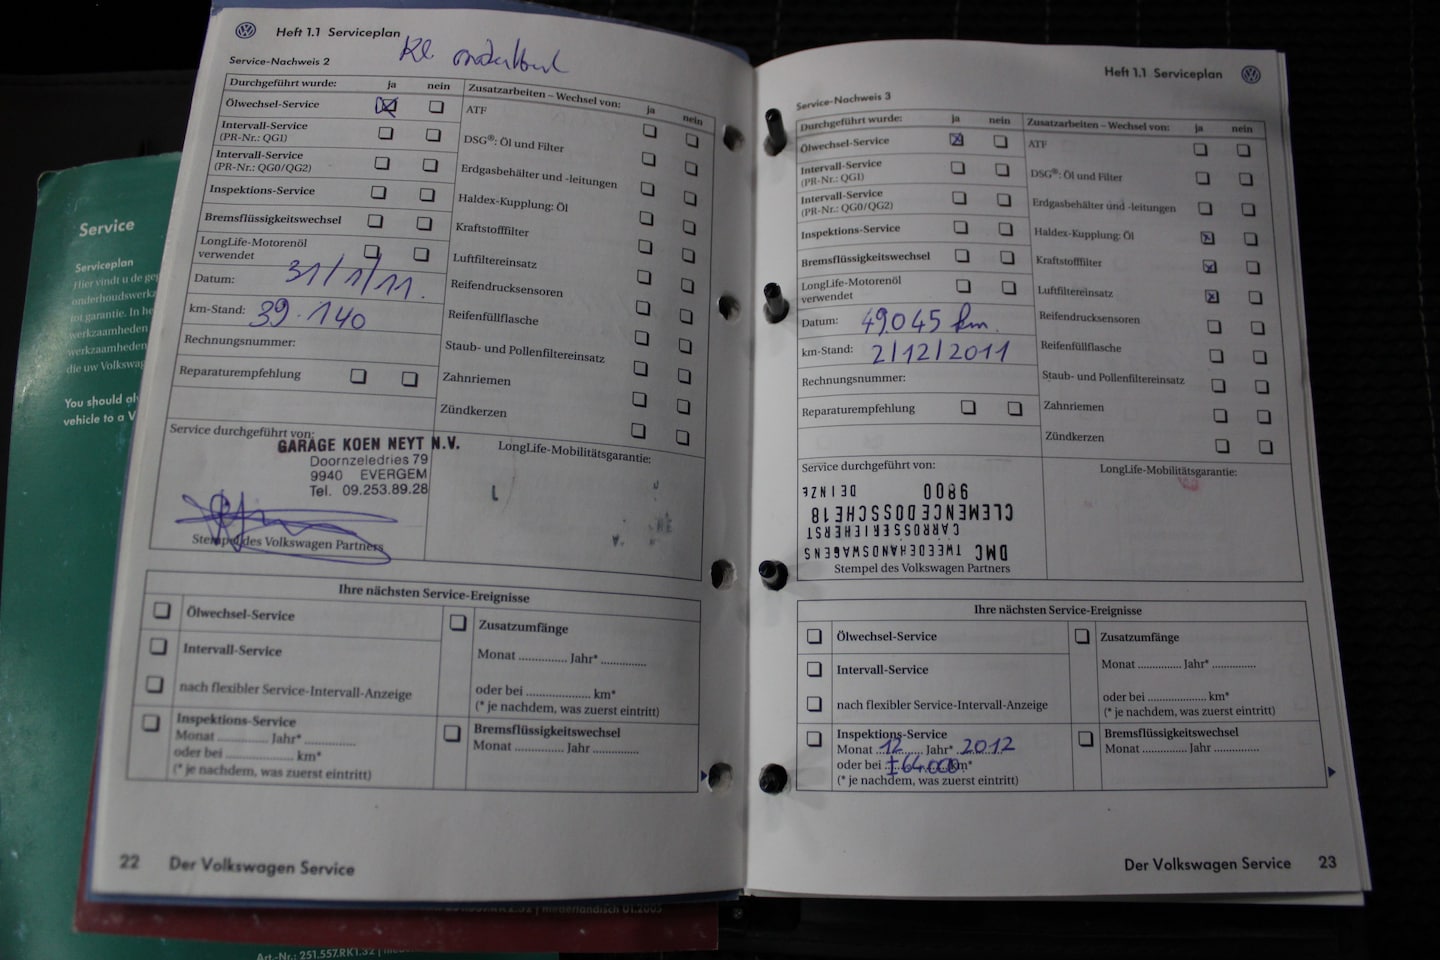 Service
Serviceplan
Hier vindt u de geg
onderhoudswerkz
tot garantie. In he
werkzaamheden
werkzaamheden
die uw Volkswag
You should al
vehicle to a V
Heft 1.1 Serviceplan
Kl. onderhoud
Service-Nachweis 2
Durchgeführt wurde: ja nein
Ölwechsel-Service
Intervall-Service
(PR-Nr.: QG1)
Intervall-Service
(PR-Nr.: QG0/QG2)
Inspektions-Service
Bremsflüssigkeitswechsel
LongLife-Motorenöl
verwendet
Datum: 31/1/11.
km-Stand: 39.140
Rechnungsnummer:
Reparaturempfehlung
Zusatzarbeiten – Wechsel von: ja nein
ATF
DSG®: Öl und Filter
Erdgasbehälter und -leitungen
Haldex-Kupplung: Öl
Kraftstofffilter
Luftfiltereinsatz
Reifendrucksensoren
Reifenfüllflasche
Staub- und Pollenfiltereinsatz
Zahnriemen
Zündkerzen
Service durchgeführt von:
GARAGE KOEN NEYT N.V.
Doornzeledries 79
9940 EVERGEM
Tel. 09.253.89.28
Stempel des Volkswagen Partners
LongLife-Mobilitätsgarantie:
Ihre nächsten Service-Ereignisse
Ölwechsel-Service
Intervall-Service
nach flexibler Service-Intervall-Anzeige
Inspektions-Service
Monat ............. Jahr* .............
oder bei ....................... km*
(* je nachdem, was zuerst eintritt)
Zusatzumfänge
Monat ............. Jahr* ............
oder bei ..................... km*
(* je nachdem, was zuerst eintritt)
Bremsflüssigkeitswechsel
Monat ............. Jahr ............
22 Der Volkswagen Service
Heft 1.1 Serviceplan
Service-Nachweis 3
Durchgeführt wurde: ja nein
Ölwechsel-Service
Intervall-Service
(PR-Nr.: QG1)
Intervall-Service
(PR-Nr.: QG0/QG2)
Inspektions-Service
Bremsflüssigkeitswechsel
LongLife-Motorenöl
verwendet
Datum: 49.045 km.
km-Stand: 2/12/2011
Rechnungsnummer:
Reparaturempfehlung
Zusatzarbeiten – Wechsel von: ja nein
ATF
DSG®: Öl und Filter
Erdgasbehälter und -leitungen
Haldex-Kupplung: Öl
Kraftstofffilter
Luftfiltereinsatz
Reifendrucksensoren
Reifenfüllflasche
Staub- und Pollenfiltereinsatz
Zahnriemen
Zündkerzen
Service durchgeführt von:
DMC TWEEDEHANDSWAGENS
CARROSSERIEHERST
CLEMENCE DOSSCHE 18
9800 DEINZE
Stempel des Volkswagen Partners
LongLife-Mobilitätsgarantie:
Ihre nächsten Service-Ereignisse
Ölwechsel-Service
Intervall-Service
nach flexibler Service-Intervall-Anzeige
Inspektions-Service
Monat 12 Jahr* 2012
oder bei ±64.000 km*
(* je nachdem, was zuerst eintritt)
Zusatzumfänge
Monat ............. Jahr* ............
oder bei ..................... km*
(* je nachdem, was zuerst eintritt)
Bremsflüssigkeitswechsel
Monat ............. Jahr ............
Der Volkswagen Service 23
niederländisch 01.2005
Art.-Nr.: 251.557.RK1.32